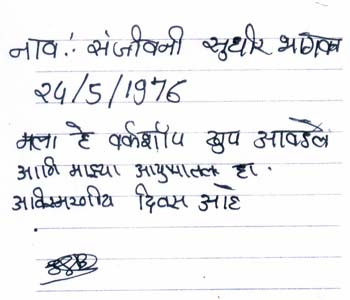 नाव :- संजीवनी सुधीर भागवत
24/5/1976
मला हे वर्कशॉप खुप आवडले
आणि माझ्या आयुष्यातल हा .
अविस्मरणीय दिवस आहे